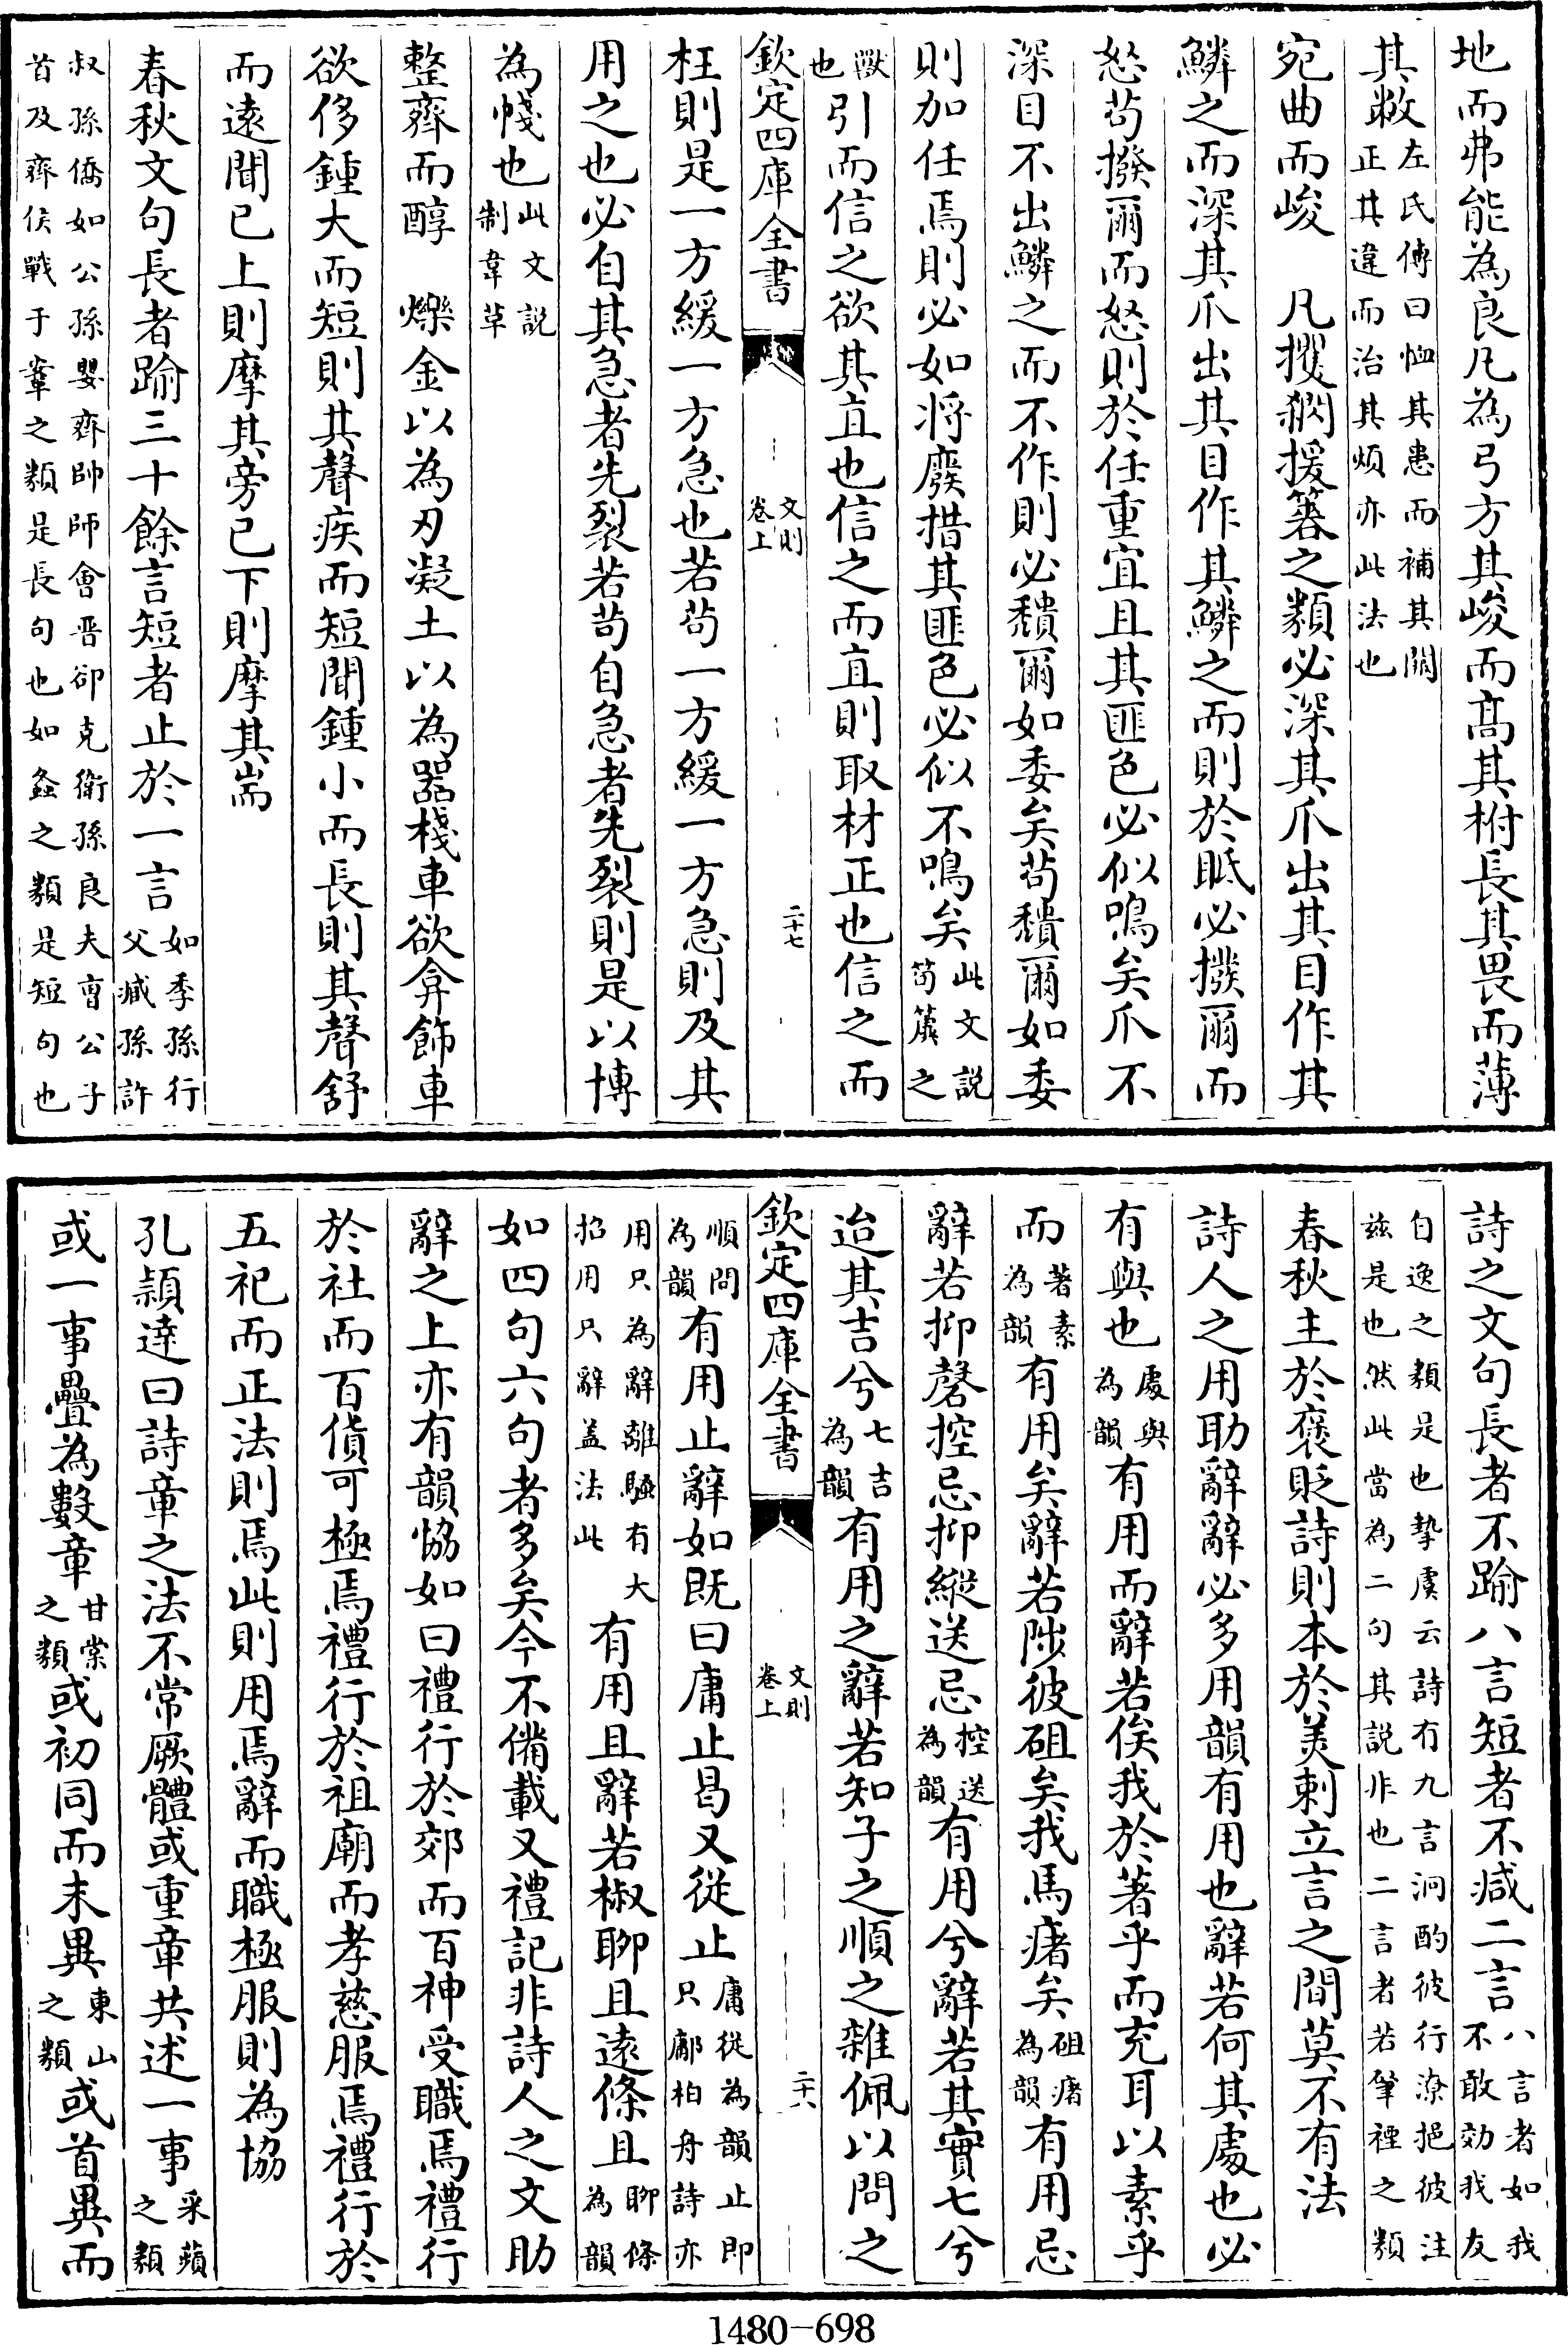 地而弗能為良凡為弓方其峻而髙其柎長其畏而薄
其敝左氏傳曰恤其患而補其闕正其違而治其煩亦此法也
宛曲而峻　凡攫閷援簭之類必深其爪出其目作其
鱗之而深其爪出其目作其鱗之而則於眡必撥爾而
怒茍撥爾而怒則於任重宜且其匪色必似鳴矣爪不
深目不出鱗之而不作則必穨爾如委矣茍穨爾如委
則加任焉則必如將廢措其匪色必似不鳴矣此文説筍簴之
獸也引而信之欲其直也信之而直則取材正也信之而
欽定四庫全書　文則卷上　二十七
枉則是一方緩一方急也若茍一方緩一方急則及其
用之也必自其急者先裂若茍自急者先裂則是以博
為帴也此文説制韋革
整齊而醇　爍金以為刃凝土以為器棧車欲弇飾車
欲侈鍾大而短則其聲疾而短聞鍾小而長則其聲舒
而逺聞已上則摩其旁已下則摩其耑
春秋文句長者踰三十餘言短者止於一言如季孫行父臧孫許
叔孫僑如公孫嬰齊帥師會晉卻克衛孫良夫曹公子首及齊侯戰于鞌之類是長句也如螽之類是短句也
詩之文句長者不踰八言短者不減二言八言者如我不敢効我友
自逸之類是也摯虞云詩有九言泂酌彼行潦挹彼注兹是也然此當為二句其説非也二言者若肇禋之類
春秋主於褒貶詩則本於美刺立言之間莫不有法
詩人之用助辭辭必多用韻有用也辭若何其處也必
有與也處與為韻有用而辭若俟我於著乎而充耳以素乎
而著素為韻有用矣辭若陟彼砠矣我馬瘏矣砠瘏為韻有用忌
辭若抑磬控忌抑縱送忌控送為韻有用兮辭若其實七兮
迨其吉兮七吉為韻有用之辭若知子之順之雜佩以問之
欽定四庫全書　文則卷上　二十八
順問為韻有用止辭如既曰庸止曷又從止庸從為韻止即只鄘柏舟詩亦
用只為辭離騷有大招用只辭盖法此有用且辭若椒聊且逺條且聊條為韻
如四句六句者多矣今不備載又禮記非詩人之文助
辭之上亦有韻恊如曰禮行於郊而百神受職焉禮行
於社而百貨可極焉禮行於祖廟而孝慈服焉禮行於
五祀而正法則焉此則用焉辭而職極服則為協
孔頴逹曰詩章之法不常厥體或重章共述一事采蘋之類
或一事疊為數章甘棠之類或初同而末異東山之類或首異而
1480-698